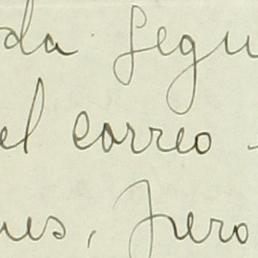 da segu
el correo -
ues, pero